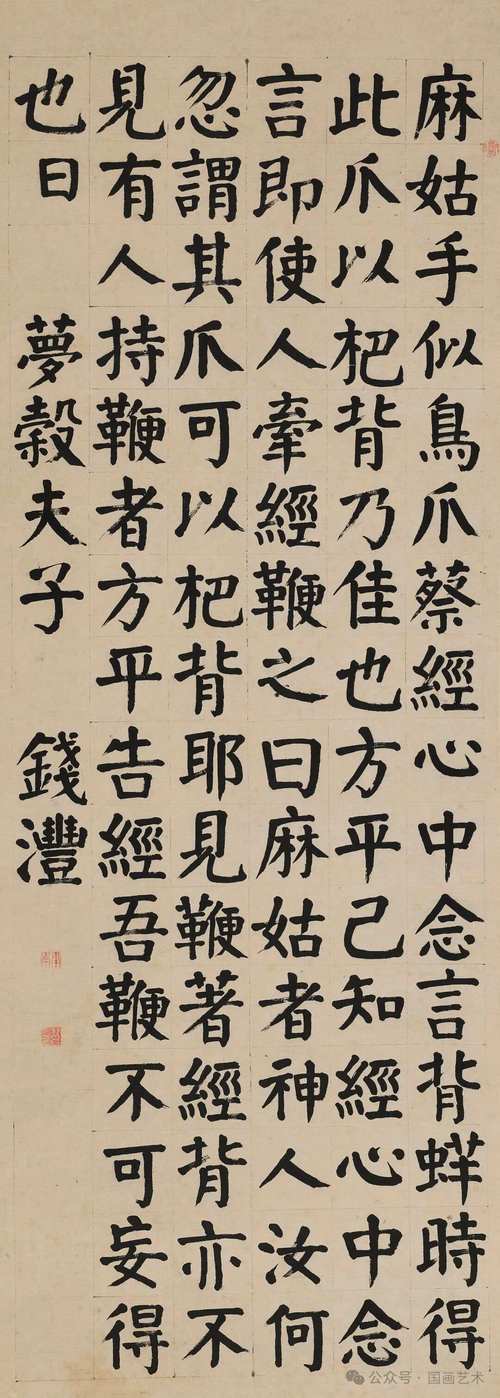 麻姑手似鳥爪蔡經心中念言背蛘時得
此爪以杷背乃佳也方平己知經心中念
言即使人牽經鞭之曰麻姑者神人汝何
忽謂其爪可以杷背耶見鞭著經背亦不
見有人持鞭者方平告經吾鞭不可妄得
也日 夢穀夫子 錢灃
公众号·国画艺术